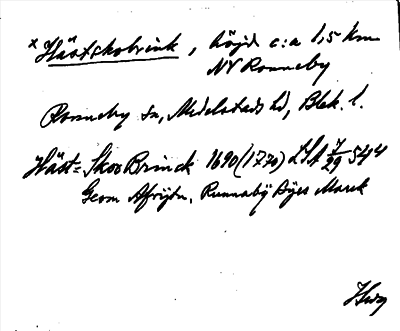 x Hästskobrink, höjd c:a 1,5 km
NV Ronneby
Ronneby sn, Medelstads hd, Blek. l.
Häst=Skoo Brinck 1690 (1770) LSA 7/29 544
Geom Afrijtn. Runnaby Byes Marck